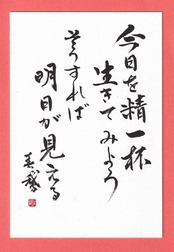 今日を精一杯
生きてみよう
そうすれば
明日が見える